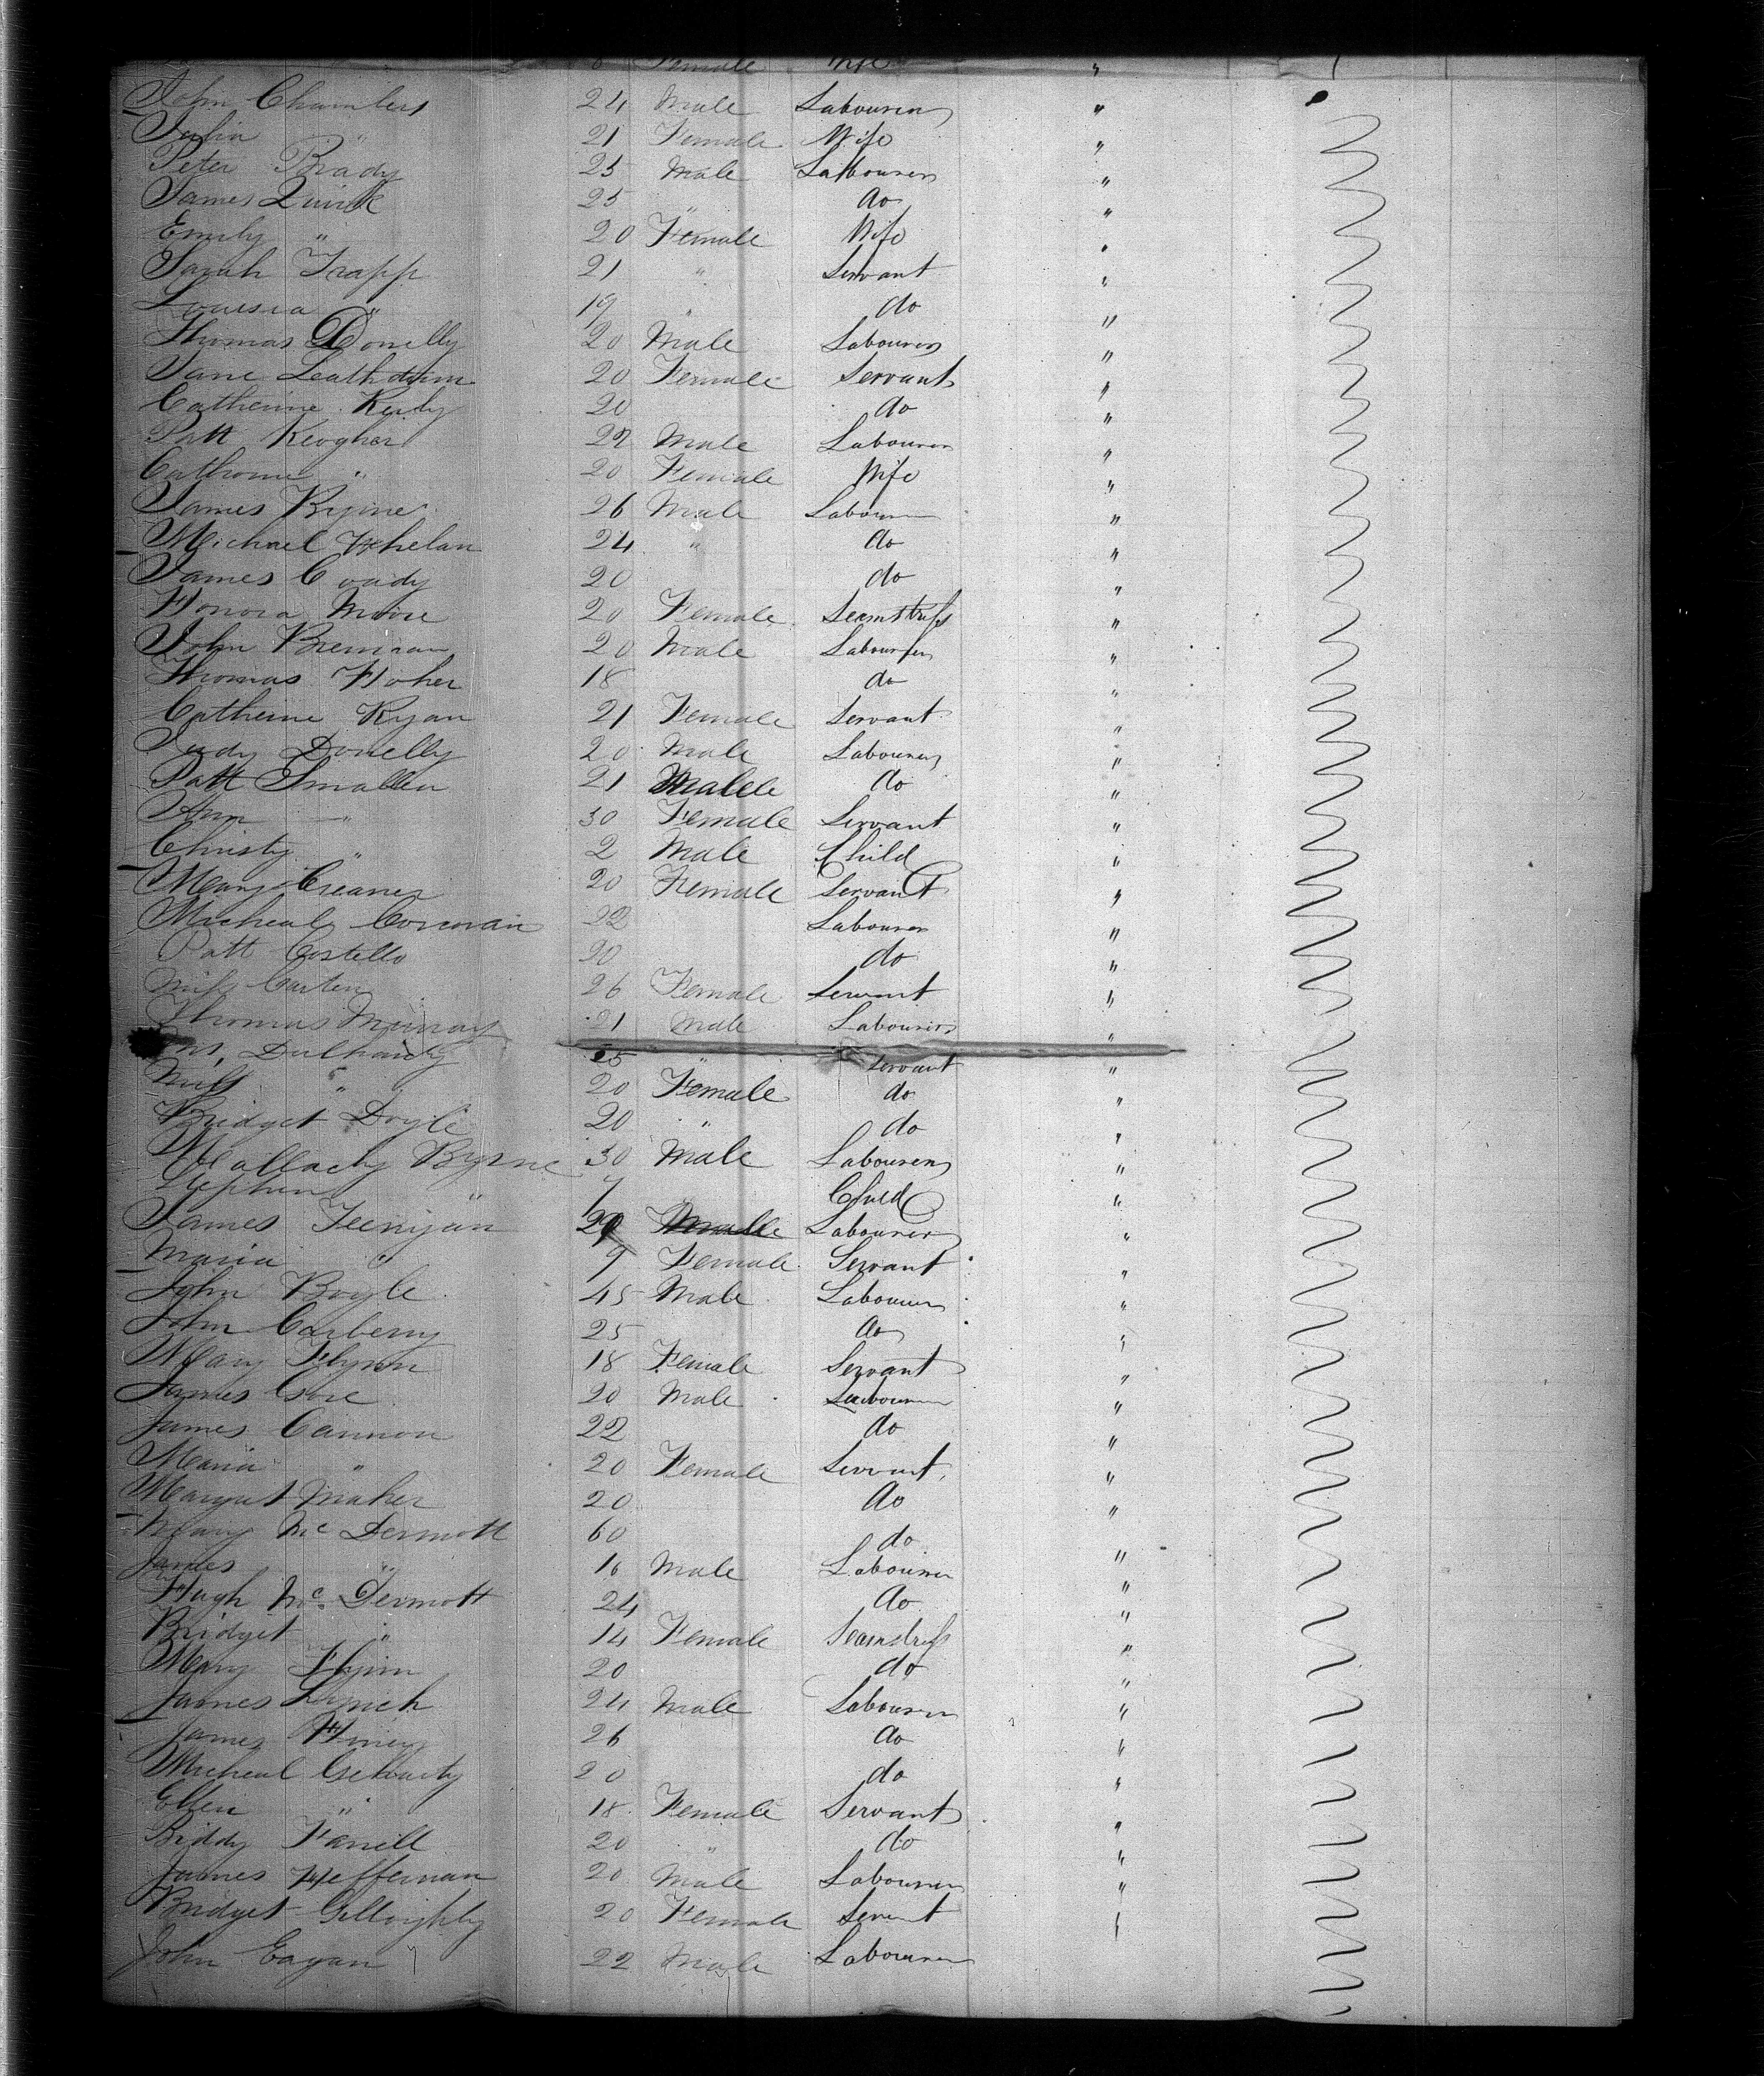 Female Wife "
John Chambers 24 Male Labourer "
Julia " 21 Female Wife "
Peter Brady 25 Male Labourer "
James Quirk 25 " do "
Emily " 20 Female Wife "
Sarah Trapp 21 " Servant "
Louisia " 19 " do "
Thomas Donelly 20 Male Labourer "
Jane 20 Female Servant "
Catherine Reily 20 do "
Patt Keogher 22 Male Labourer "
Catherine " 20 Female Wife "
James Ryine 26 Male Labourer "
Michael Whelan 24 " do "
James Coady 20 do "
Honora Moore 20 Female Seamstress "
John Brennan 20 Male Labourer "
Thomas Hoher 18 do "
Catherine Ryan 21 Female Servant "
Judy Donelly 20 Male Labourer "
Patt Smallen 21 Male do "
Ann " 30 Female Servant "
Christy " 2 Male Child "
Mary Creaner 20 Female Servant "
Micheal Corcoran 22 Labourer "
Patt Costello 20 do "
Miss Carten 26 Female Servant "
Thomas Murray 21 Male Labourer "
25 " Servant "
Miss " 20 Female do "
Bridget Doyle 20 " do "
Mallachy Byrne 30 Male Labourer "
Stephen " 7 " Child "
James Feenijan Male Labourer "
Maria " 9 Female Servant "
John Boyle 45 Male Labourer "
John Carberry 25 do "
Mary Flynn 18 Female Servant "
James Gore 20 Male Labourer "
James Cannon 22 do "
Maria " 20 Female Servant "
Margret Maher 20 do "
Mary Mc Dermott 60 do "
James " 16 Male Labourer "
Hugh Mc Dermott 24 do "
Bridget " 14 Female Seamstress "
Mary Flynn 20 do "
James Lynch 24 Male Labourer "
James 26 do "
Micheal Geharty 20 do "
Ellen " 18 Female Servant "
Biddy Farrell 20 " do "
James Heffernan 20 Male Labourer "
Bridget Gilloighly 20 Female Servent "
John Eagan 22 Male Labourer